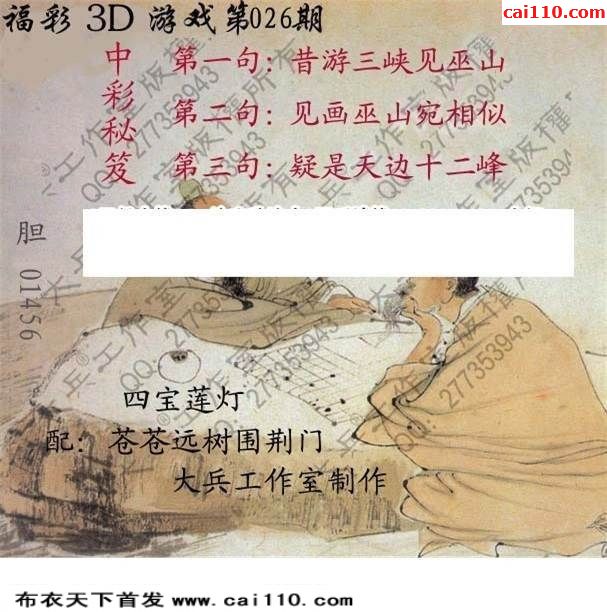 cai110.com
福彩 3D 游戏第026期
中彩秘笈
第一句：昔游三峡见巫山
第二句：见画巫山宛相似
第三句：疑是天边十二峰
胆 01456
四宝莲灯
配：苍苍远树围荆门
大兵工作室制作
大兵工作室版权所有
QQ：277353943
布衣天下首发 www.cai110.com